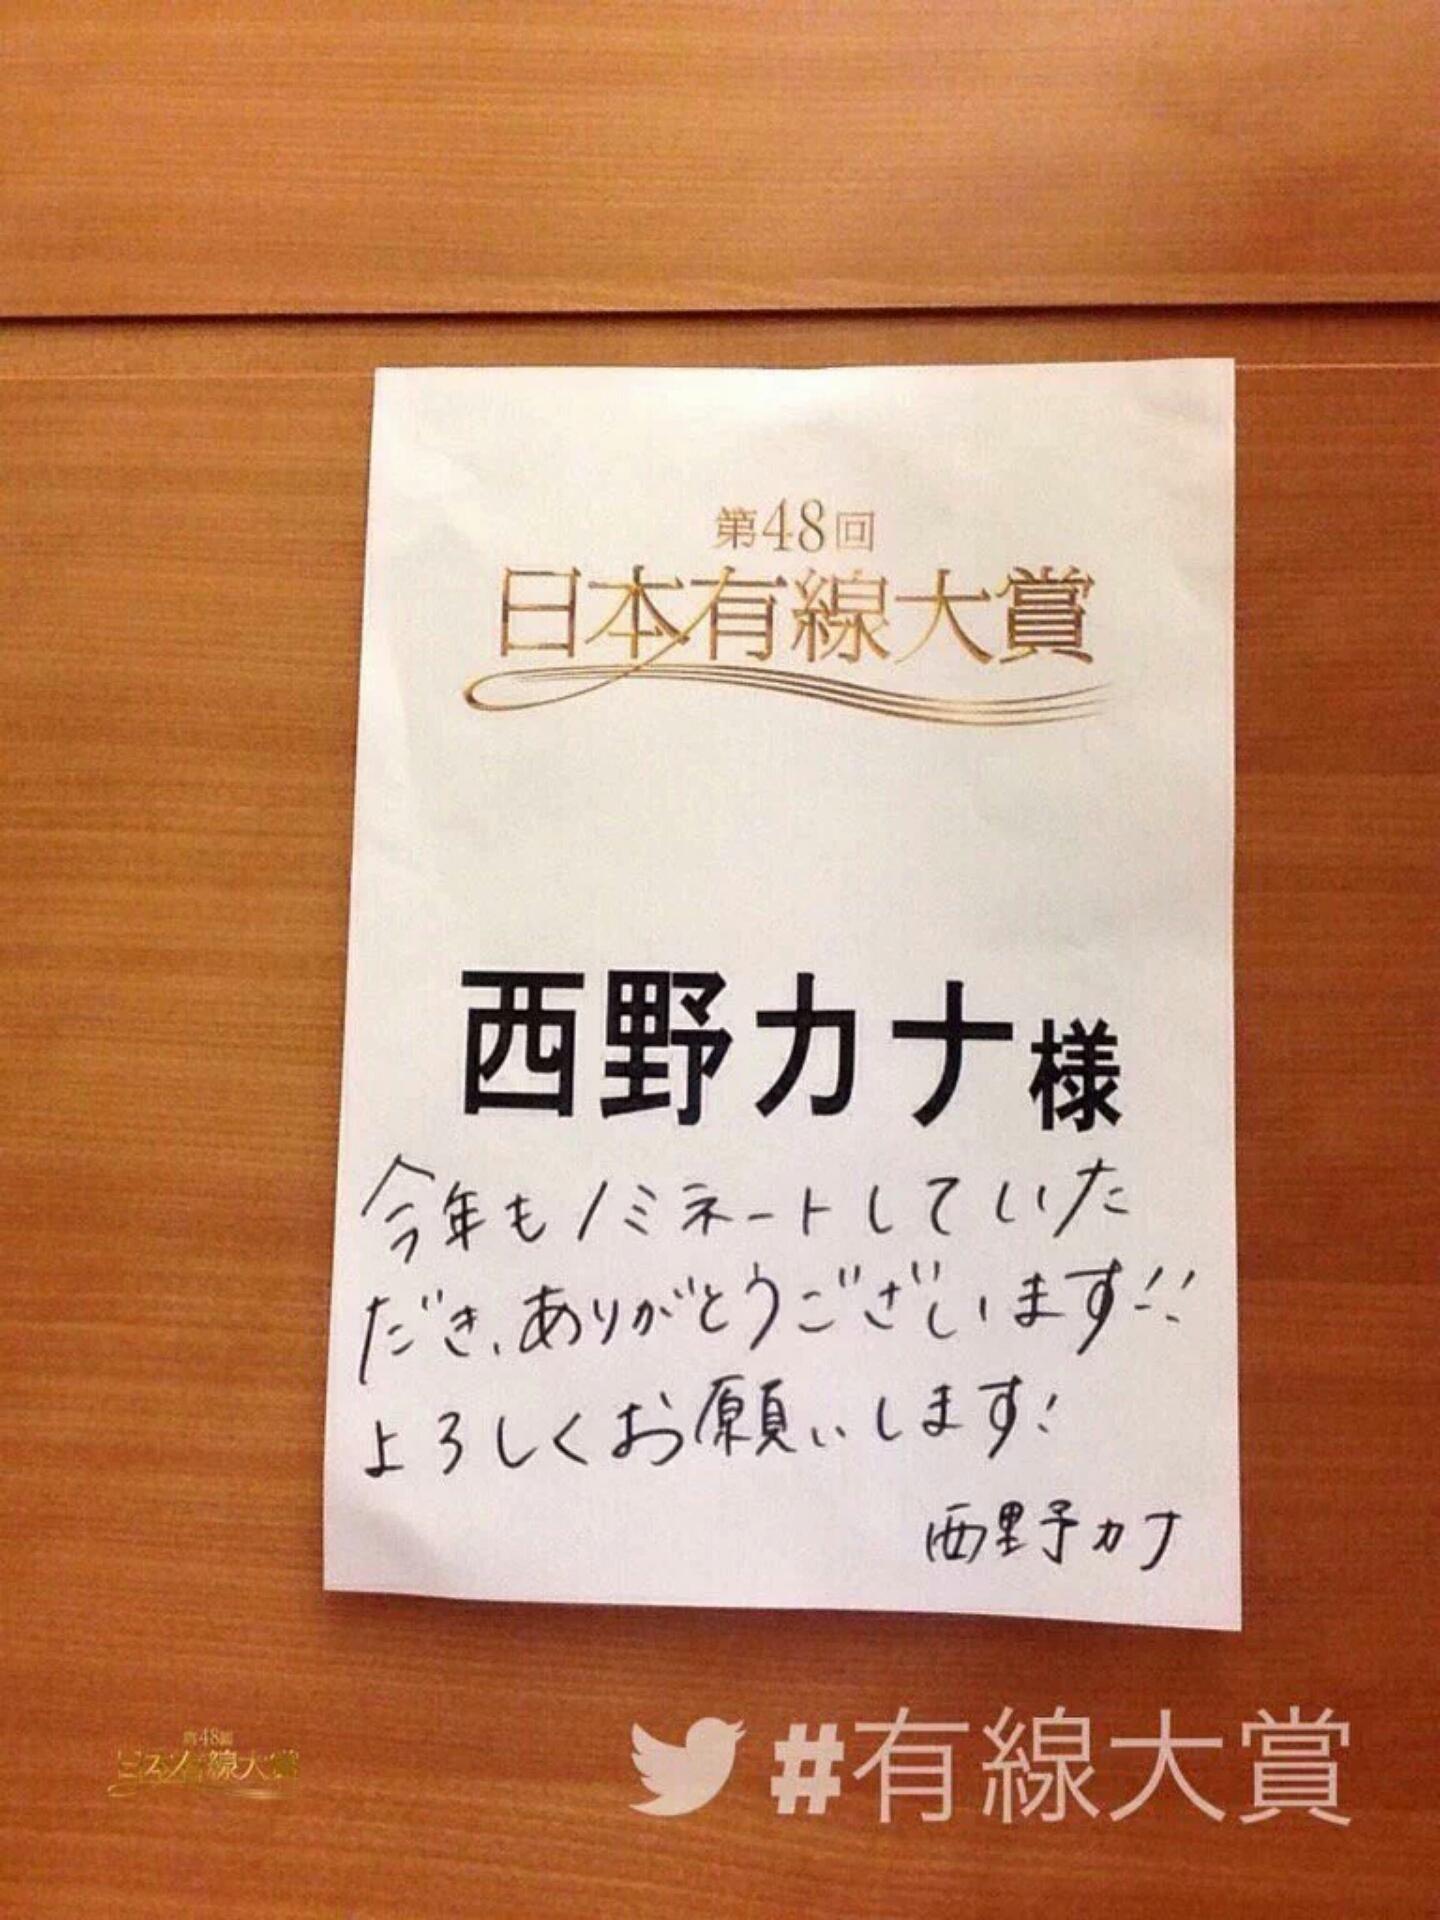 第48回
日本有線大賞
西野カナ様
今年もノミネートしていた
だき、ありがとうございます!!
よろしくお願いします!
西野カナ
第48回
日本有線大賞
#有線大賞